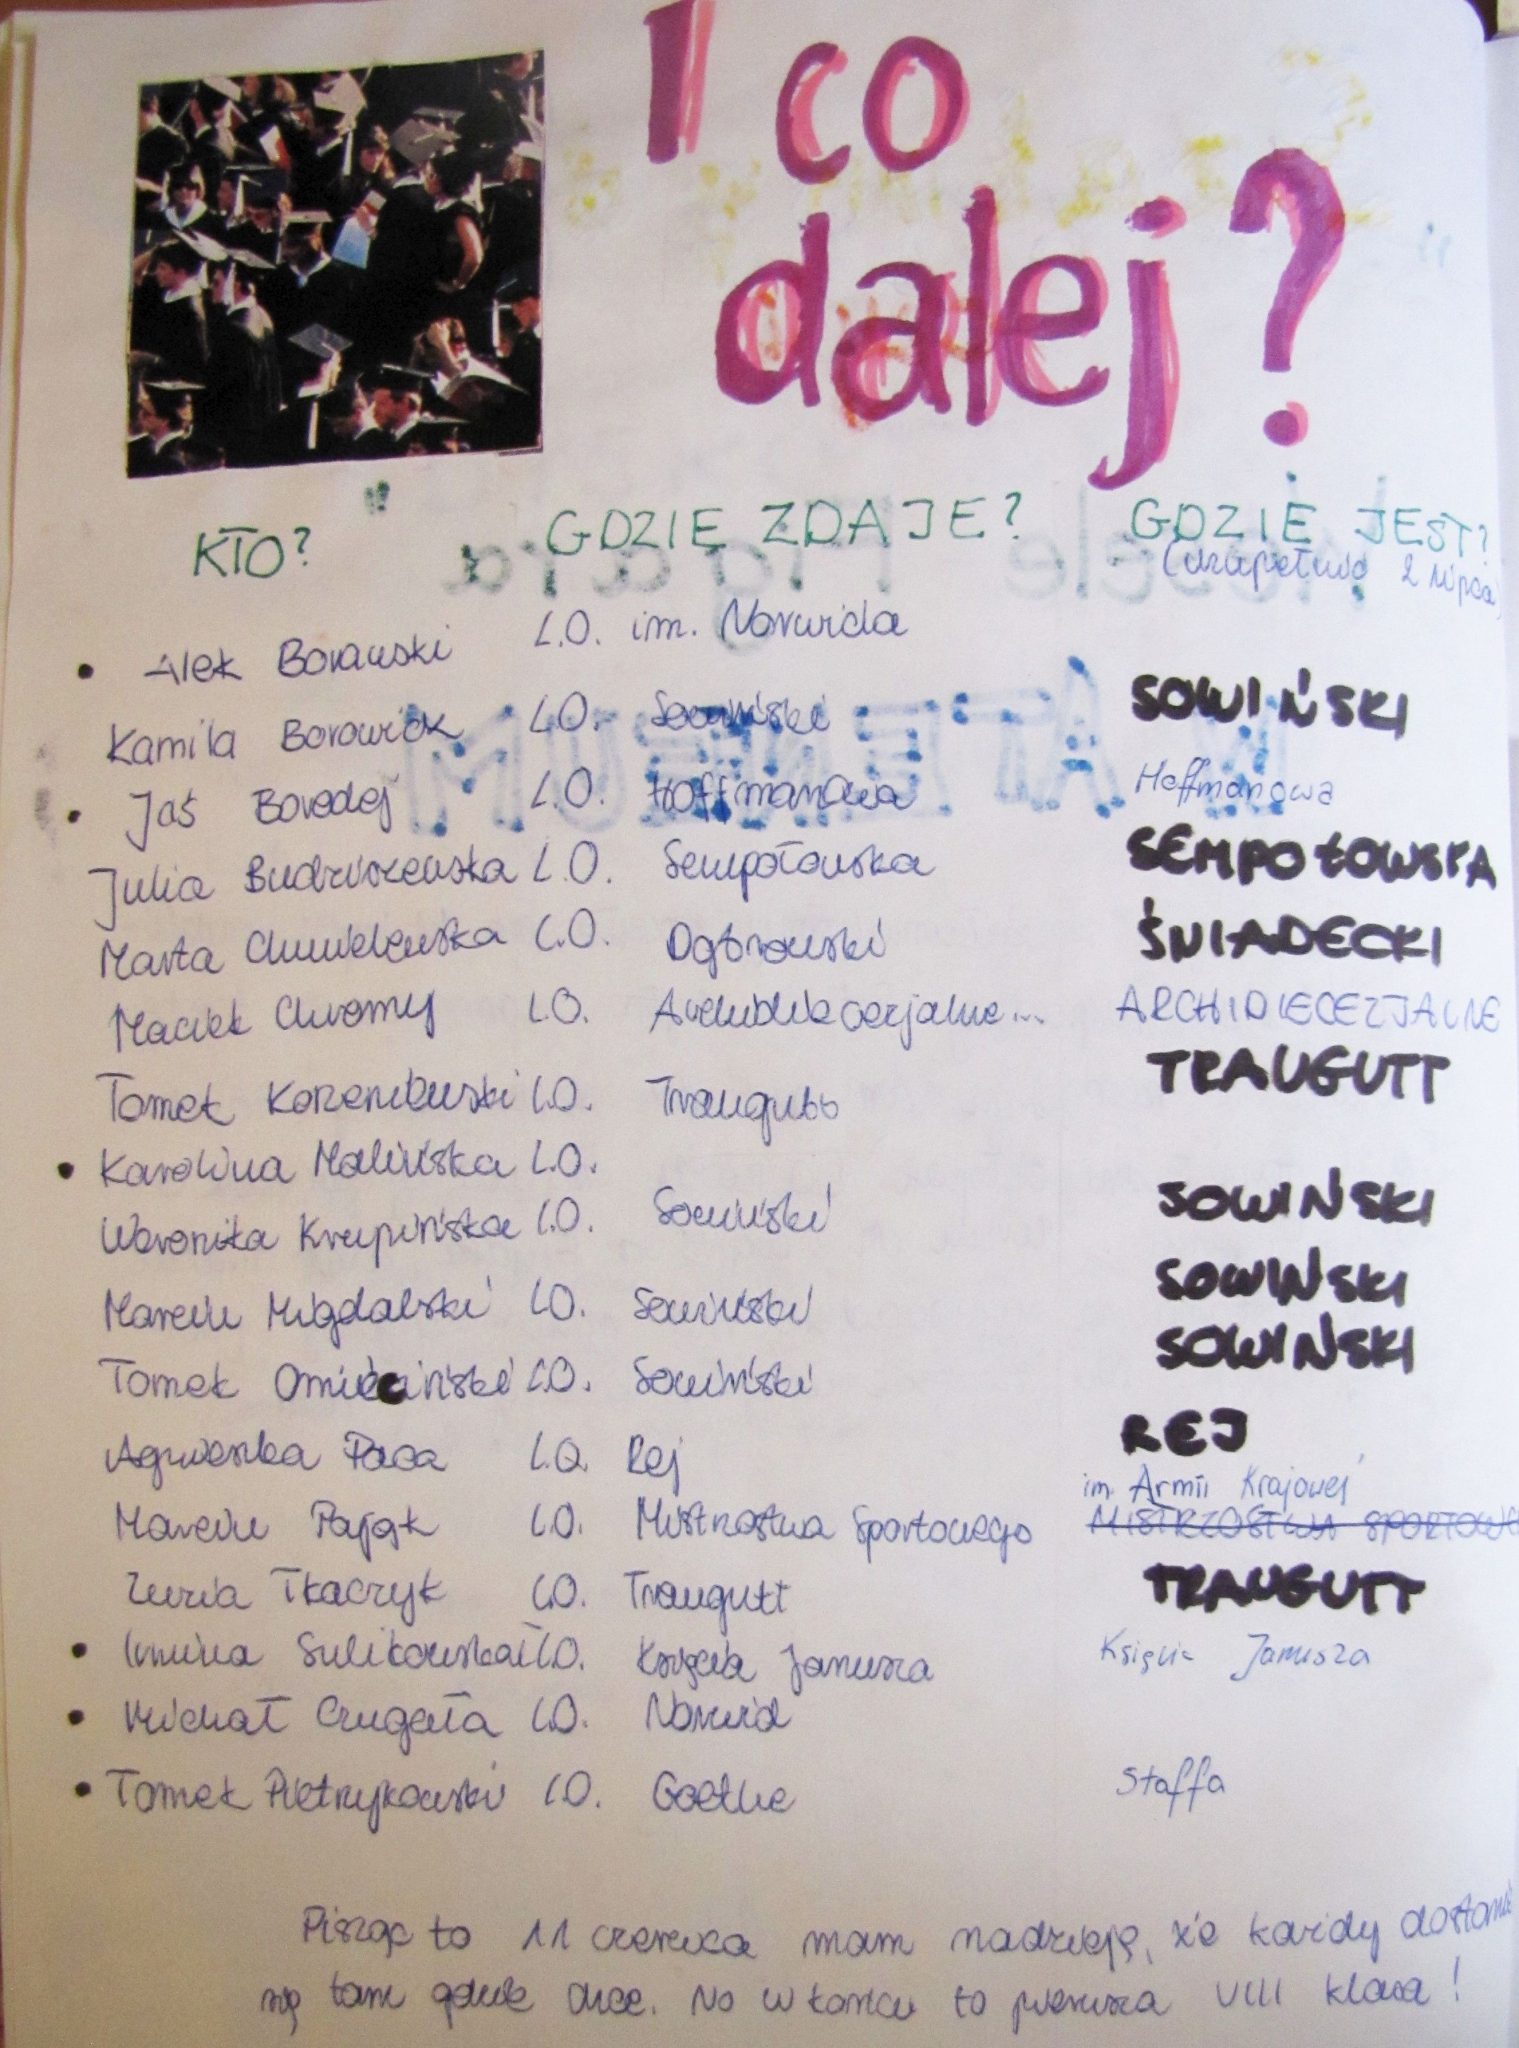 I co
dalej?
KTO? GDZIE ZDAJE? GDZIE JEST?
(uzupełnió 2 lipca)
• Alek Borawski L.O. im. Norwida
Kamila Borowick L.O. Sowiński SOWIŃSKI
• Jaś Boredej L.O. Hoffmanowa Hoffmanowa
Julia Budziszewska L.O. Sempołowska SEMPOŁOWSKA
Marta Chmielewska L.O. Dąbrowski ŚNIADECKI
Maciek Chromy L.O. Archidiecezjalne... ARCHIDIECEZJALNE
Tomek Korzeniewski L.O. Traugutt TRAUGUTT
• Karolina Malińska L.O.
Weronika Krupińska L.O. Sowiński SOWIŃSKI
Marcin Migdalski L.O. Sowiński SOWIŃSKI
Tomek Omieciński L.O. Sowiński SOWIŃSKI
Agnieszka Paca L.O. Rej REJ
im. Armii Krajowej
Marcin Pająk L.O. Mistrzostwa Sportowego MISTRZOSTWA SPORTOW
Zuzia Tkaczyk L.O. Traugutt TRAUGUTT
• Sulikowska L.O. Księcia Janusza Księcia Janusza
• Michał Czugała L.O. Norwid
• Tomek Pietrzykowski L.O. Goethe Staffa
Pisząc to 11 czerwca mam nadzieję, że każdy dostanie
się tam gdzie chce. No w końcu to pierwsza VIII klasa!